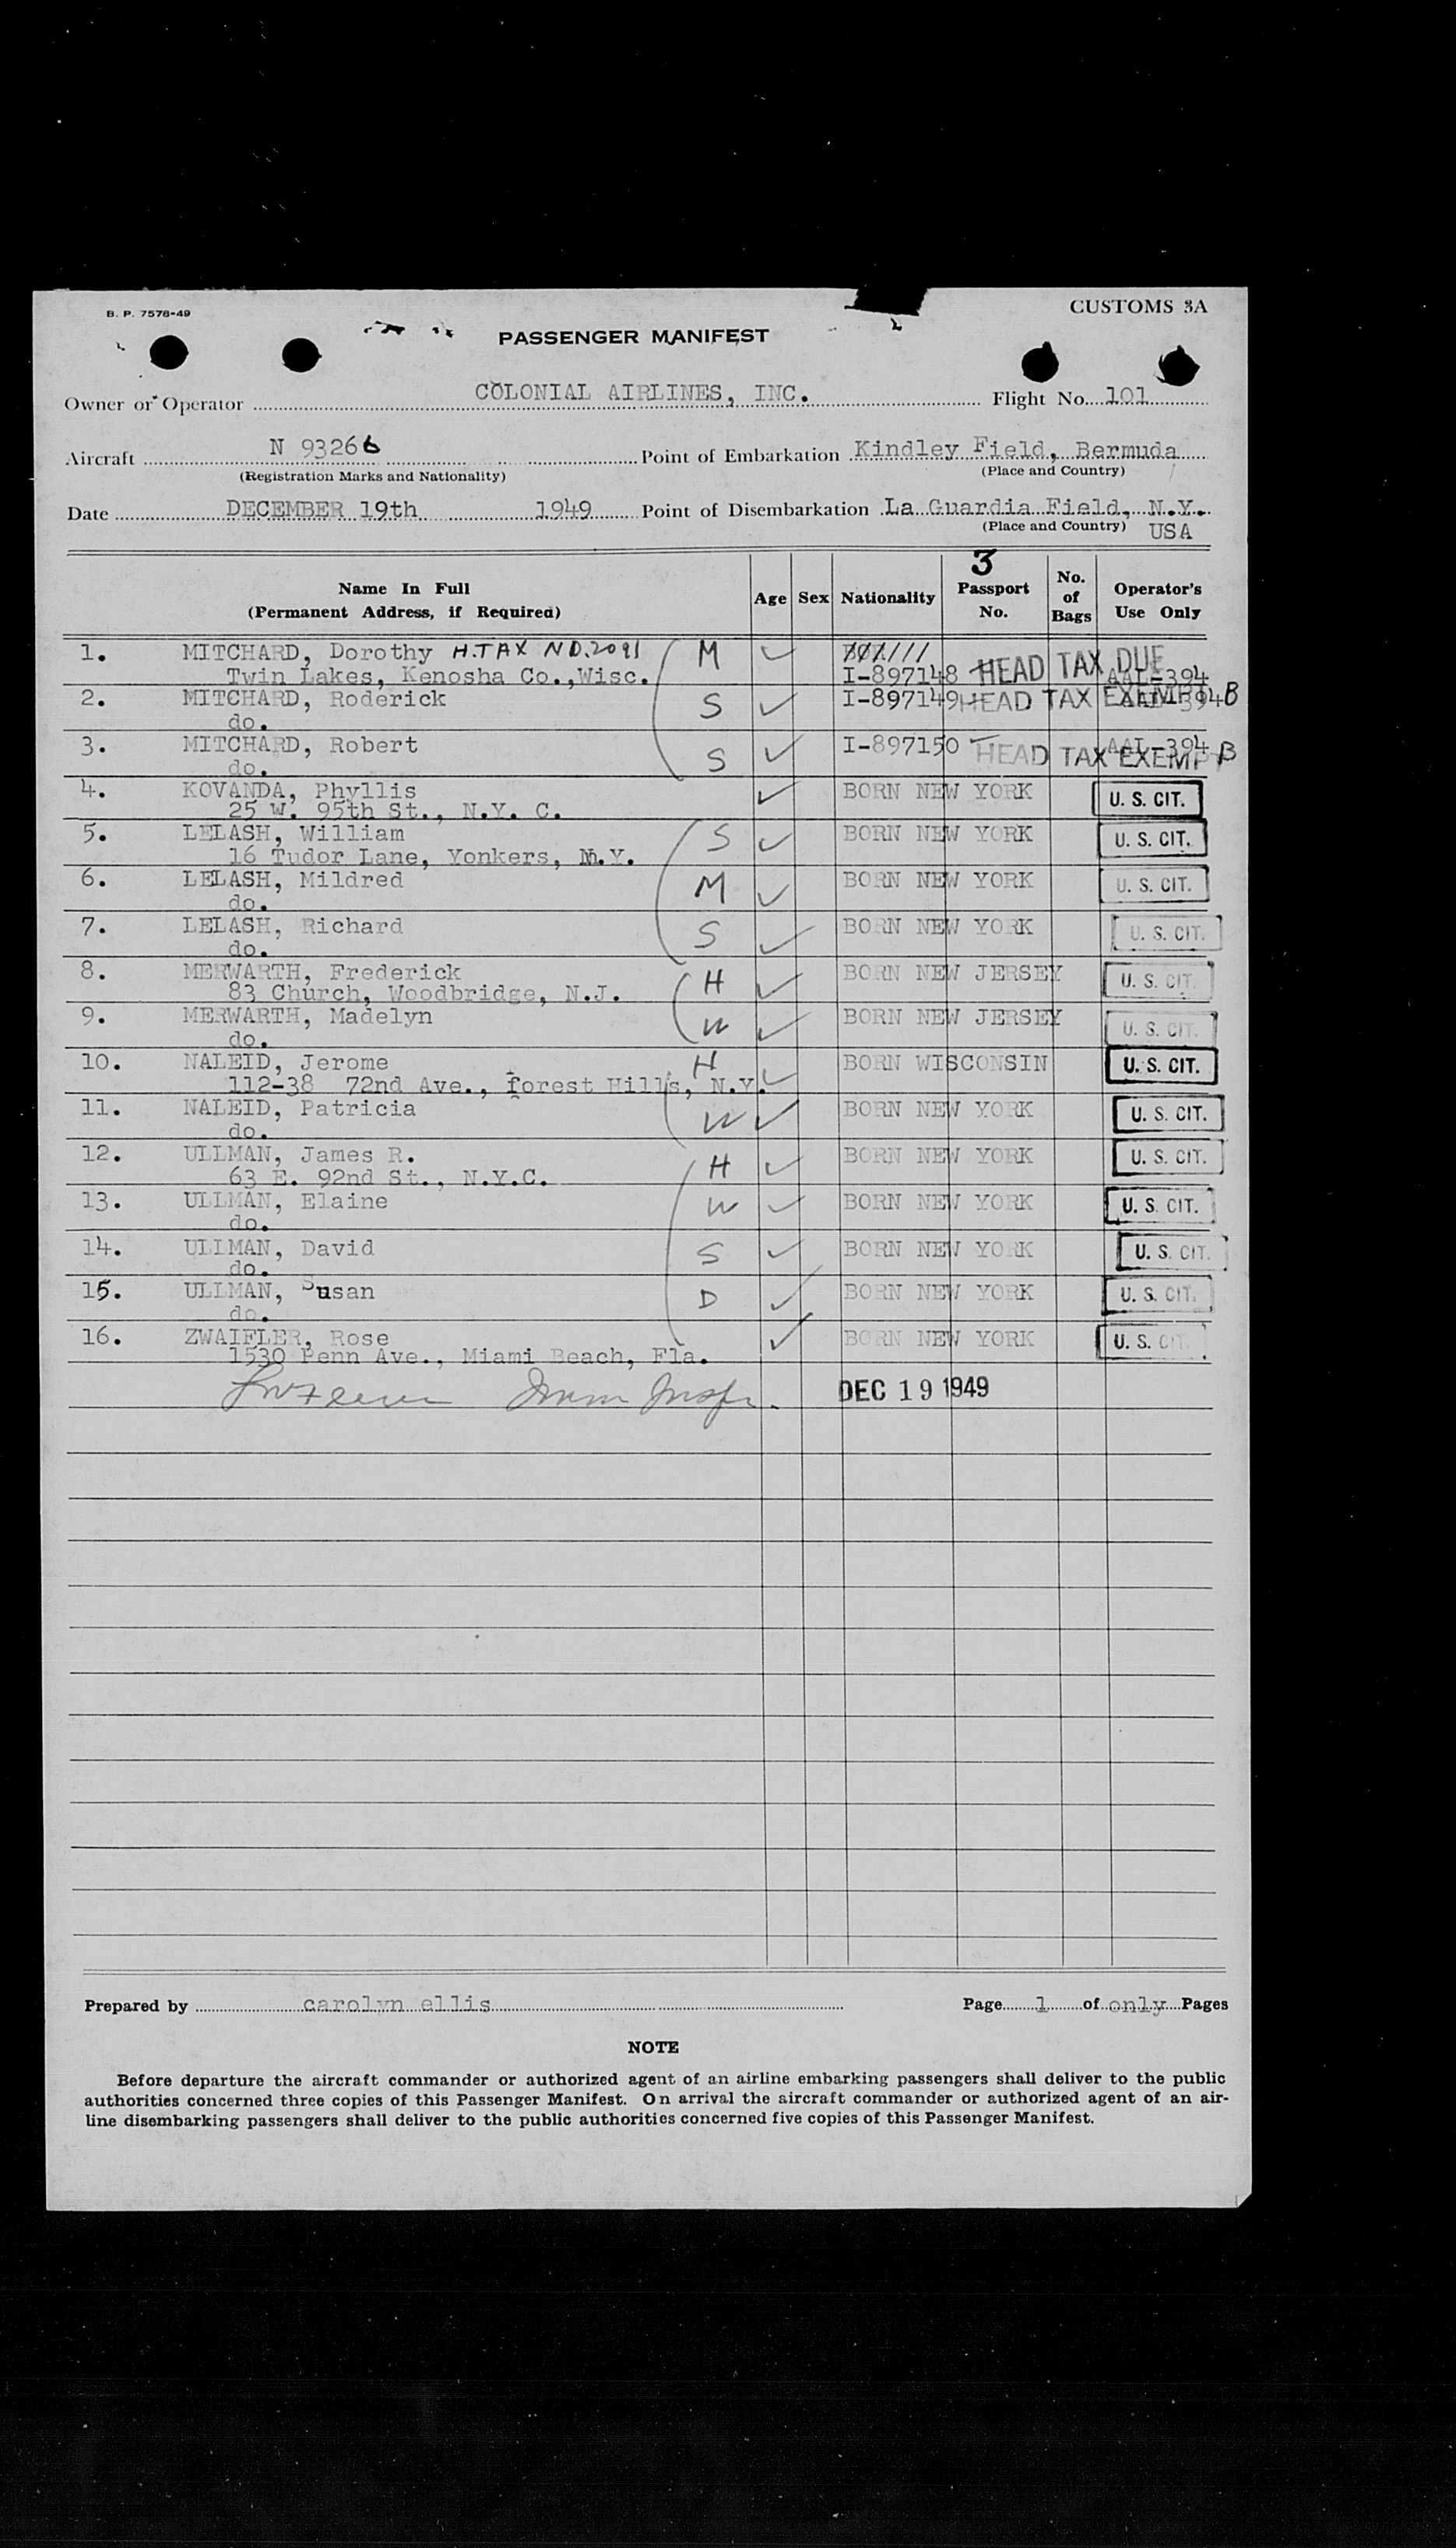 B. P. 7578-49
CUSTOMS 3A
PASSENGER MANIFEST
Owner or Operator COLONIAL AIRLINES, INC. Flight No. 101
Aircraft N 93266 Point of Embarkation Kindley Field, Bermuda
(Registration Marks and Nationality) (Place and Country)
Date DECEMBER 19th 1949 Point of Disembarkation La Guardia Field, N.Y.
(Place and Country) USA
3
Name In Full (Permanent Address, if Required) Age Sex Nationality Passport No. No. of Bags Operator's Use Only
1. MITCHARD, Dorothy H.TAX ND.2091 M
Twin Lakes, Kenosha Co.,Wisc. I-897148 HEAD TAX DUE AAL-394
2. MITCHARD, Roderick S I-897149 HEAD TAX EXEMPT AAL-394 B
do.
3. MITCHARD, Robert S I-897150 HEAD TAX EXEMPT AAL-394 B
do.
4. KOVANDA, Phyllis BORN NEW YORK U. S. CIT.
25 W. 95th St., N.Y. C.
5. LELASH, William S BORN NEW YORK U. S. CIT.
16 Tudor Lane, Yonkers, N.Y.
6. LELASH, Mildred M BORN NEW YORK U. S. CIT.
do.
7. LELASH, Richard S BORN NEW YORK U. S. CIT.
do.
8. MERWARTH, Frederick H BORN NEW JERSEY U. S. CIT.
83 Church, Woodbridge, N.J.
9. MERWARTH, Madelyn W BORN NEW JERSEY U. S. CIT.
do.
10. NALEID, Jerome H BORN WISCONSIN U. S. CIT.
112-38 72nd Ave., forest Hills, N.Y.
11. NALEID, Patricia W BORN NEW YORK U. S. CIT.
do.
12. ULLMAN, James R. H BORN NEW YORK U. S. CIT.
63 E. 92nd St., N.Y.C.
13. ULLMAN, Elaine W BORN NEW YORK U. S. CIT.
do.
14. ULLMAN, David S BORN NEW YORK U. S. CIT.
do.
15. ULLMAN, Susan D BORN NEW YORK U. S. CIT.
do.
16. ZWAIFLER, Rose BORN NEW YORK U. S. CIT.
1530 Penn Ave., Miami Beach, Fla.
Imm Inspr. DEC 19 1949
Prepared by carolyn ellis Page 1 of only Pages
NOTE
Before departure the aircraft commander or authorized agent of an airline embarking passengers shall deliver to the public
authorities concerned three copies of this Passenger Manifest. On arrival the aircraft commander or authorized agent of an air-
line disembarking passengers shall deliver to the public authorities concerned five copies of this Passenger Manifest.